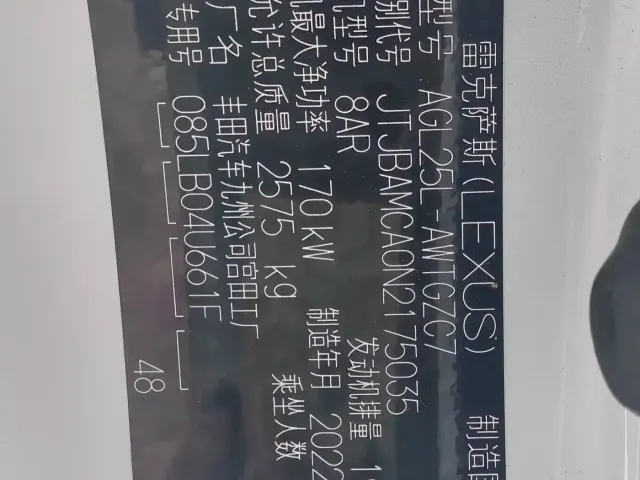 雷克萨斯(LEXUS) 制造国
型号 AGL25L-AWTGZC7
别代号 JTJBAMCA0N2175035
机型号 8AR 发动机排量
机最大净功率 170kW 制造年月 2022
允许总质量 2575 kg 乘坐人数
厂名 丰田汽车九州公司宫田工厂
专用号 085LB04U661F
48